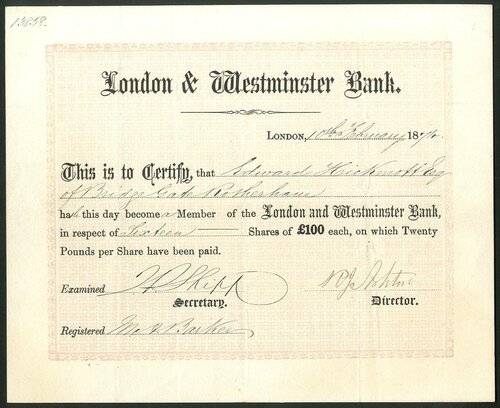 13858.
London & Westminster Bank.
London, 10th February 187
This is to Certify, that Edward Hickmott Esq
of Bridge Gate Rotherham
has this day become a Member of the London and Westminster Bank,
in respect of Sixteen Shares of £100 each, on which Twenty
Pounds per Share have been paid.
Examined
Secretary. Director.
Registered Barker